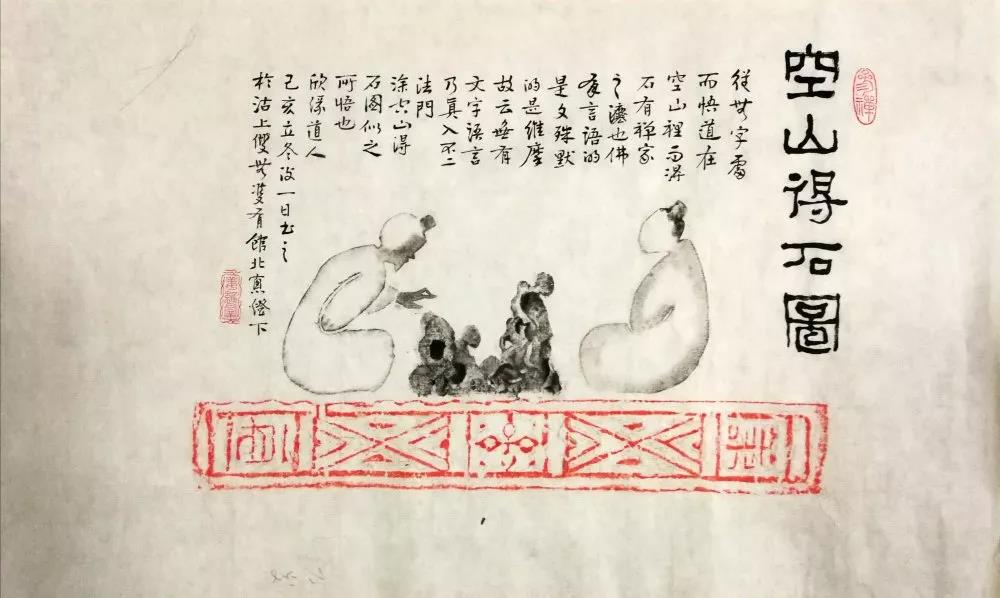 空山得石圖
從無字處
而悟道在
空山裡而得
石有禪家
之也佛
有言語的
是文殊默
的是維摩
故云無有
文字語言
乃真入不二
法門
塗空山得
石图似之
所悟也
道人
己亥立冬後一日書之
於沽上雙無雙有館北窗燈下